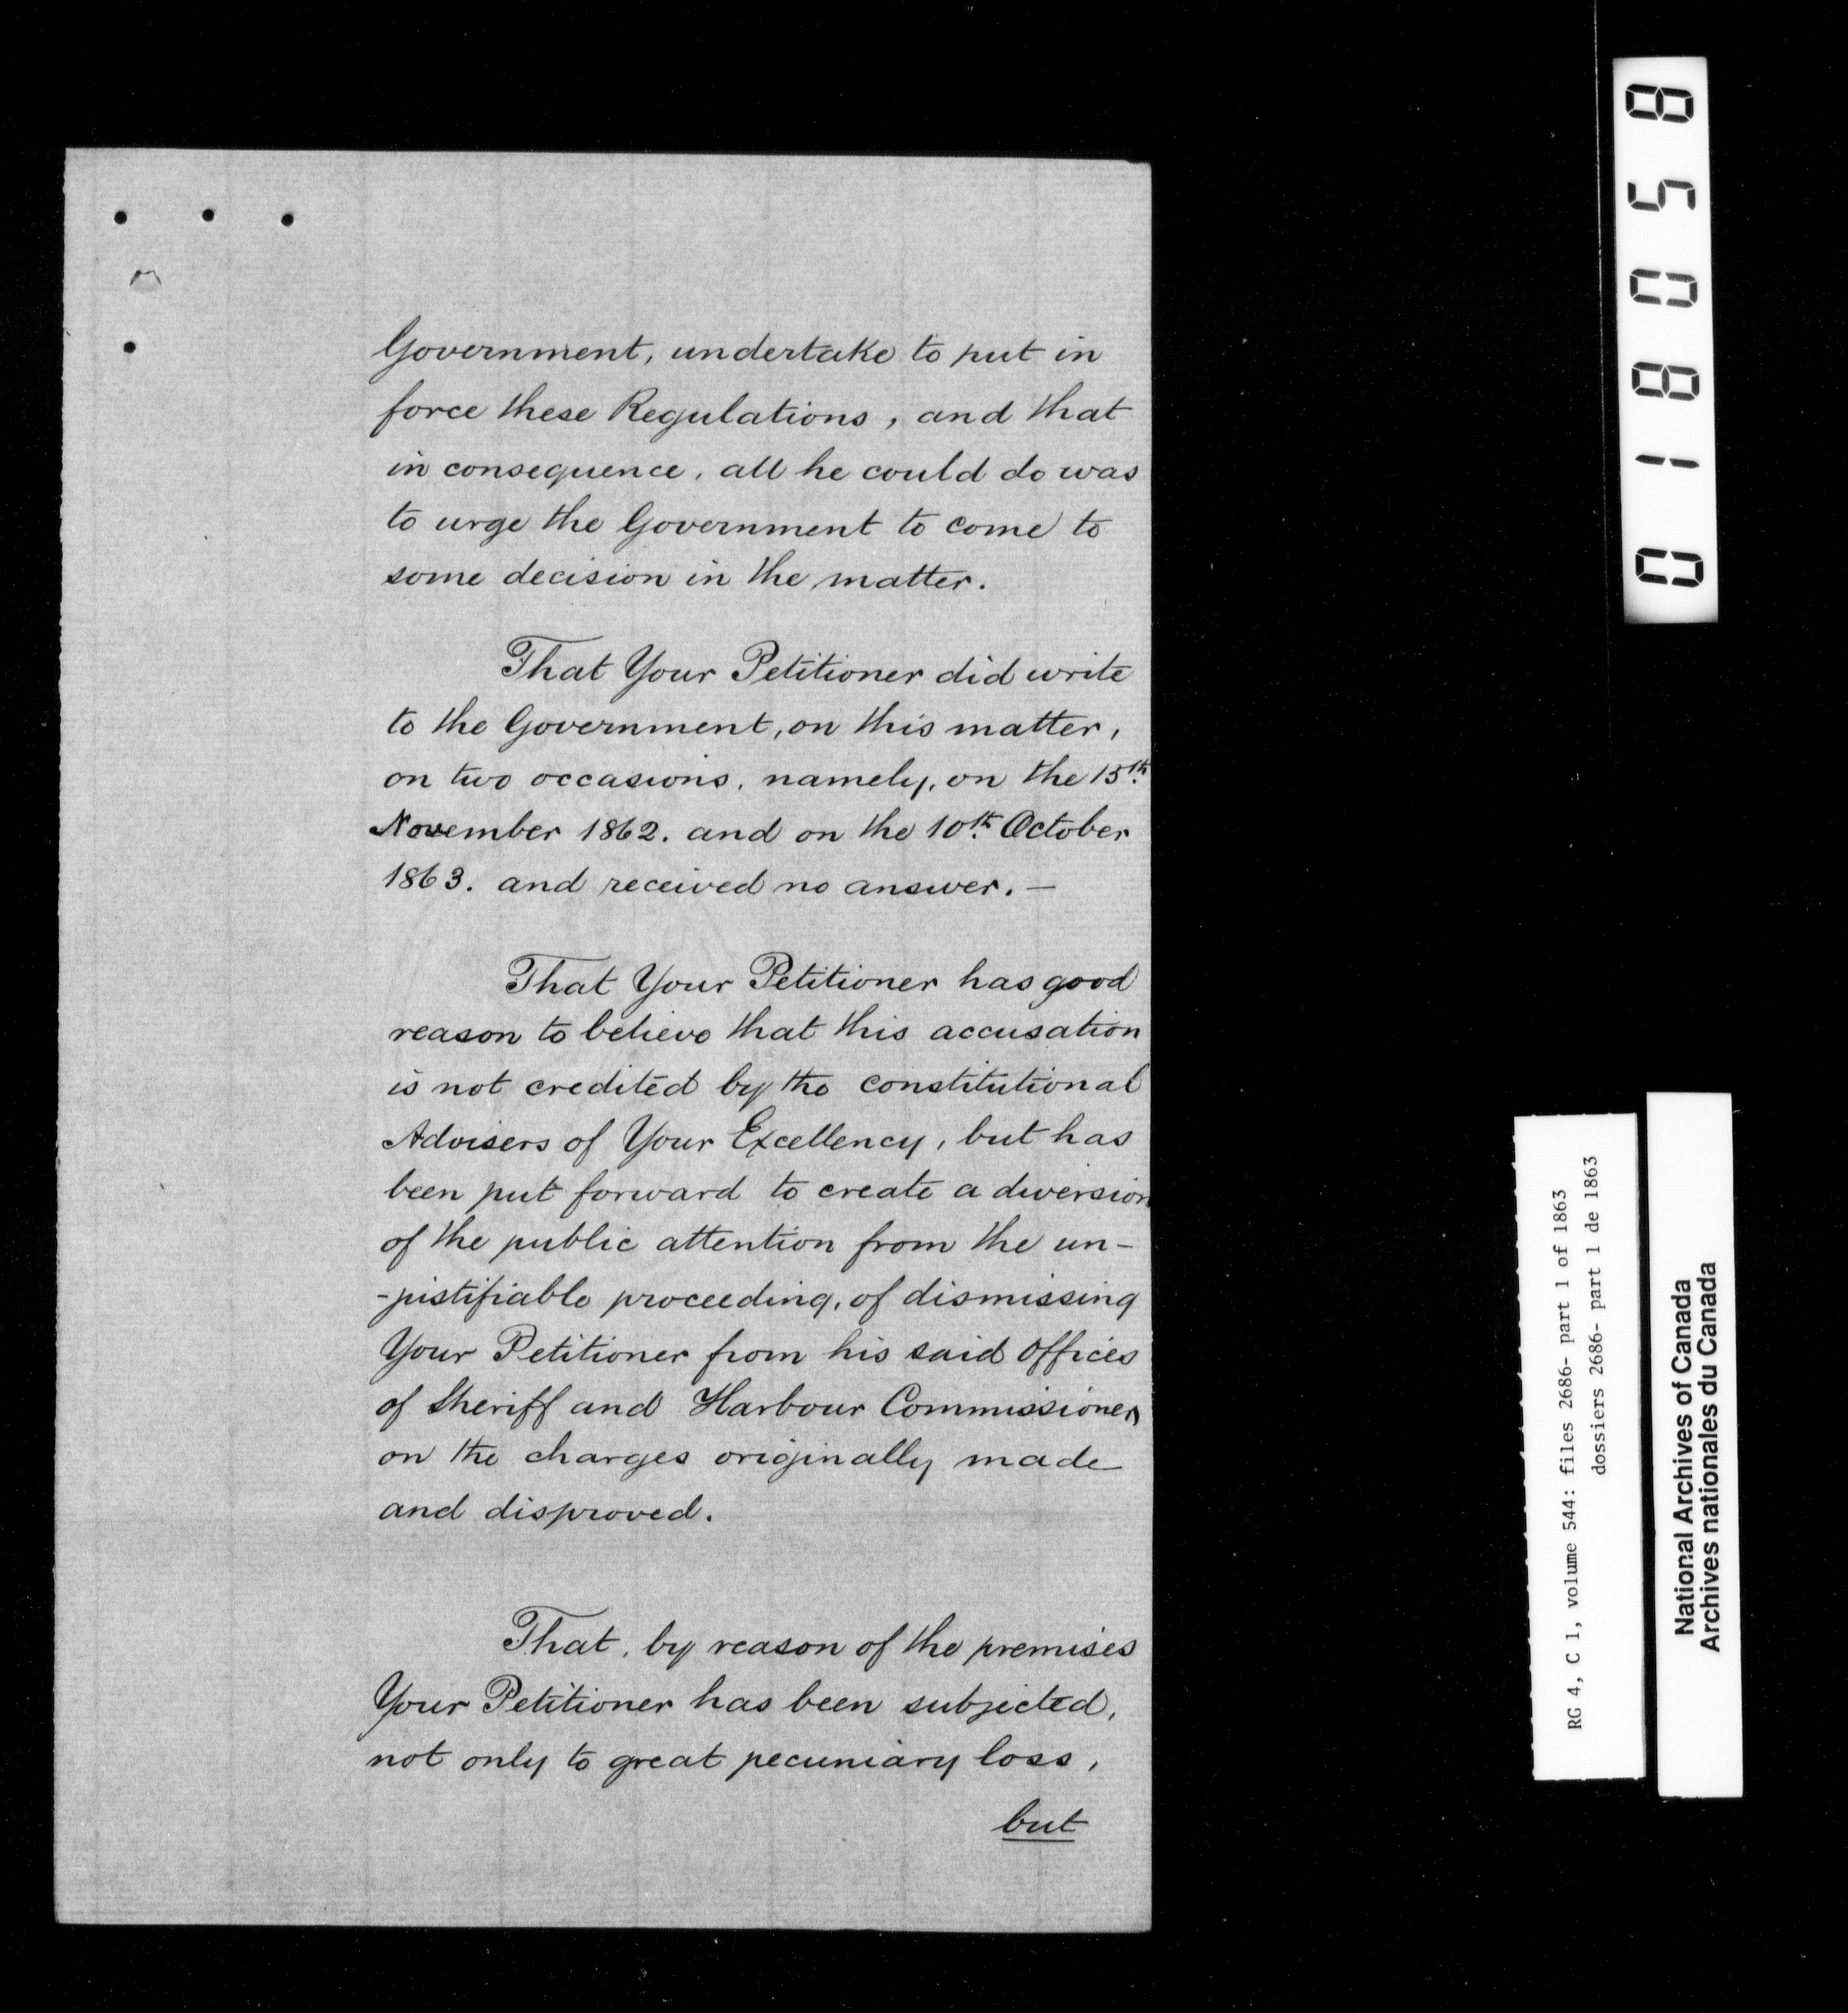 Government, undertake to put in
force these Regulations, and that
in consequence, all he could do was
to urge the Government to come to
some decision in the matter.
That Your Petitioner did write
to the Government, on this matter,
on two occasions, namely, on the 15th
November 1862. and on the 10th October
1863. and received no answer. —
That Your Petitioner has good
reason to believe that this accusation
is not credited by the constitutional
Advisers of Your Excellency, but has
been put forward to create a diversion
of the public attention from the un-
-justifiable proceeding, of dismissing
Your Petitioner from his said Offices
of Sheriff and Harbour Commissioner,
on the charges originally made
and disproved.
That, by reason of the premises
Your Petitioner has been subjected,
not only to great pecuniary loss,
but
018058
RG 4, C 1, volume 544: files 2686- part 1 of 1863
dossiers 2686- part 1 de 1863
National Archives of Canada
Archives nationales du Canada